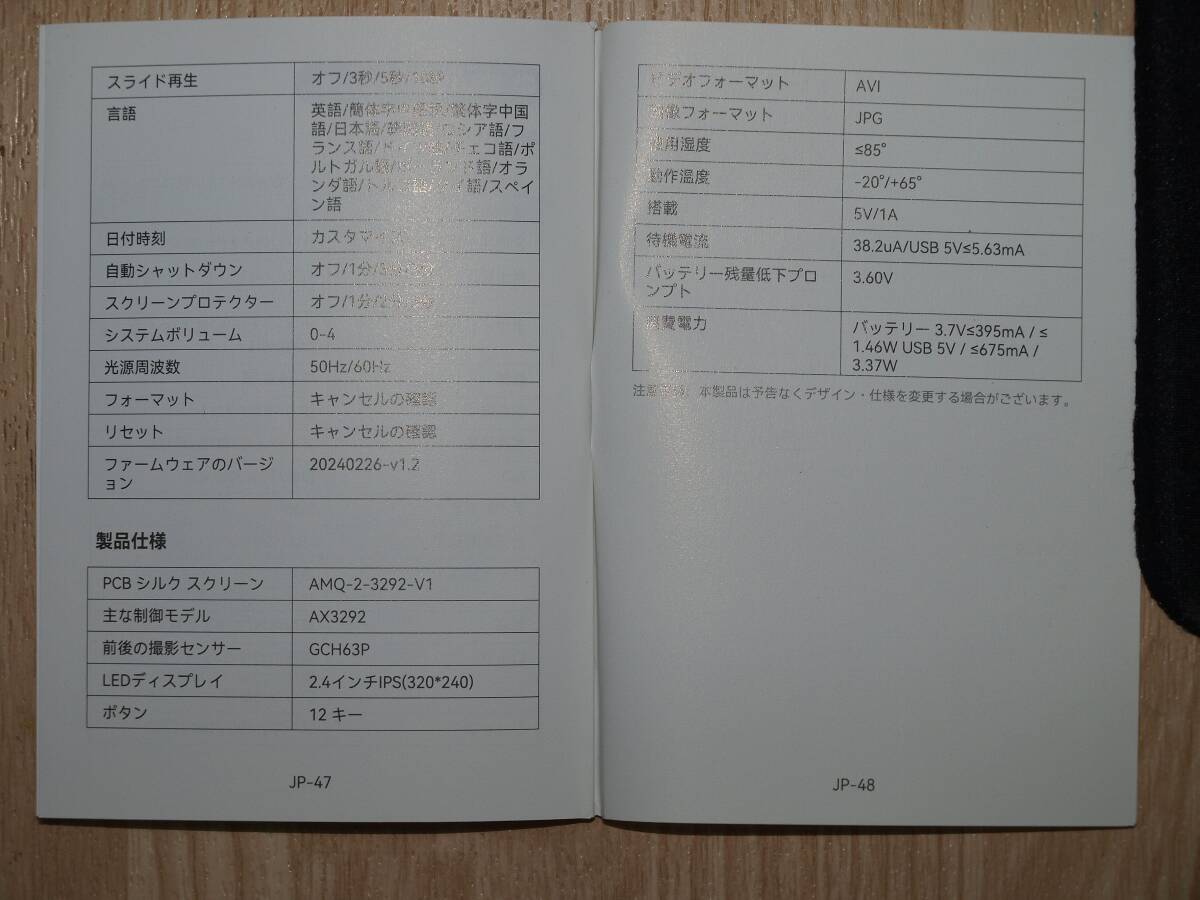 スライド再生 オフ/3秒/5秒/
言語 英語/簡体字中国語/繁体字中国
語/日本語/韓国語/ロシア語/フ
ランス語/ドイツ語/チェコ語/ポ
ルトガル語/ポーランド語/オラ
ンダ語/トルコ語/タイ語/スペイ
ン語
日付時刻 カスタマイズ
自動シャットダウン オフ/1分/
スクリーンプロテクター オフ/1分/
システムボリューム 0-4
光源周波数 50Hz/60Hz
フォーマット キャンセルの確認
リセット キャンセルの確認
ファームウェアのバージ 20240226-v1.2
ョン
製品仕様
PCB シルク スクリーン AMQ-2-3292-V1
主な制御モデル AX3292
前後の撮影センサー GCH63P
LEDディスプレイ 2.4インチIPS(320*240)
ボタン 12 キー
JP-47
ビデオフォーマット AVI
画像フォーマット JPG
使用湿度 ≤85°
動作温度 -20°/+65°
搭載 5V/1A
待機電流 38.2uA/USB 5V≤5.63mA
バッテリー残量低下プロ 3.60V
ンプト
消費電力 バッテリー 3.7V≤395mA / ≤
1.46W USB 5V / ≤675mA /
3.37W
本製品は予告なくデザイン・仕様を変更する場合がございます。
JP-48